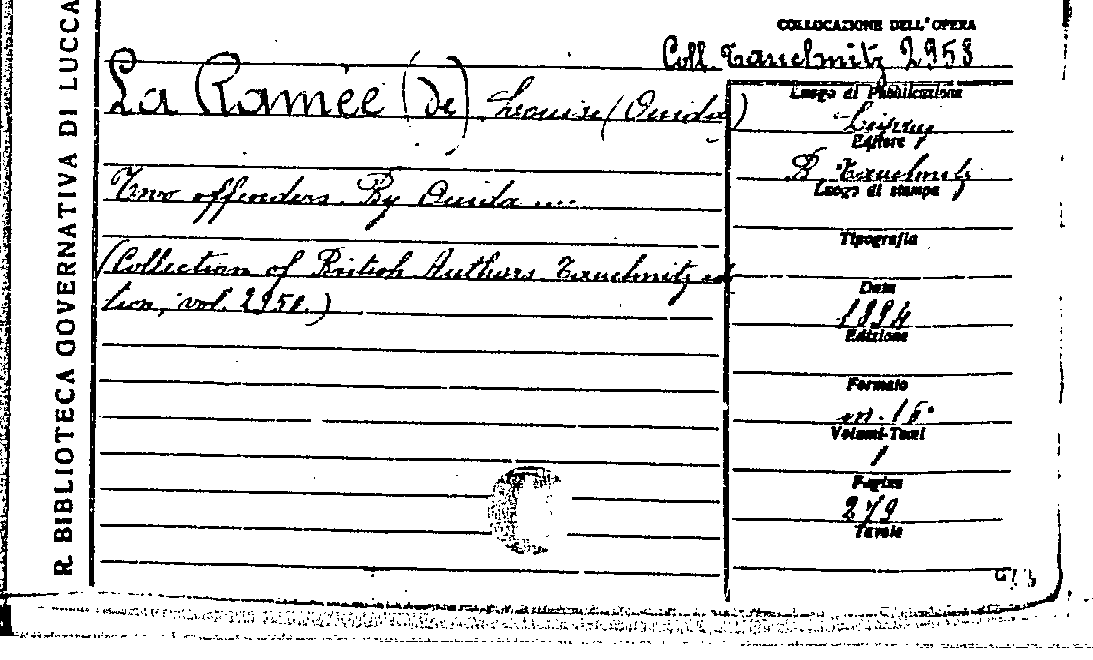 R. BIBLIOTECA GOVERNATIVA DI LUCCA
COLLOCAZIONE DELL'OPERA
Coll. Tauchnitz 2958
La Ramée (de) Louise (Ouida)
Two offenders. By Ouida ....
(Collection of British Authors Tauchnitz edi
tion, vol. 2958.)
Luogo di Pubblicazione
Leipzig
Editore
B. Tauchnitz
Luogo di stampa
Tipografia
Data
1894
Edizione
Formato
in. 16°
Volumi-Tomi
1
Pagine
279
Tavole